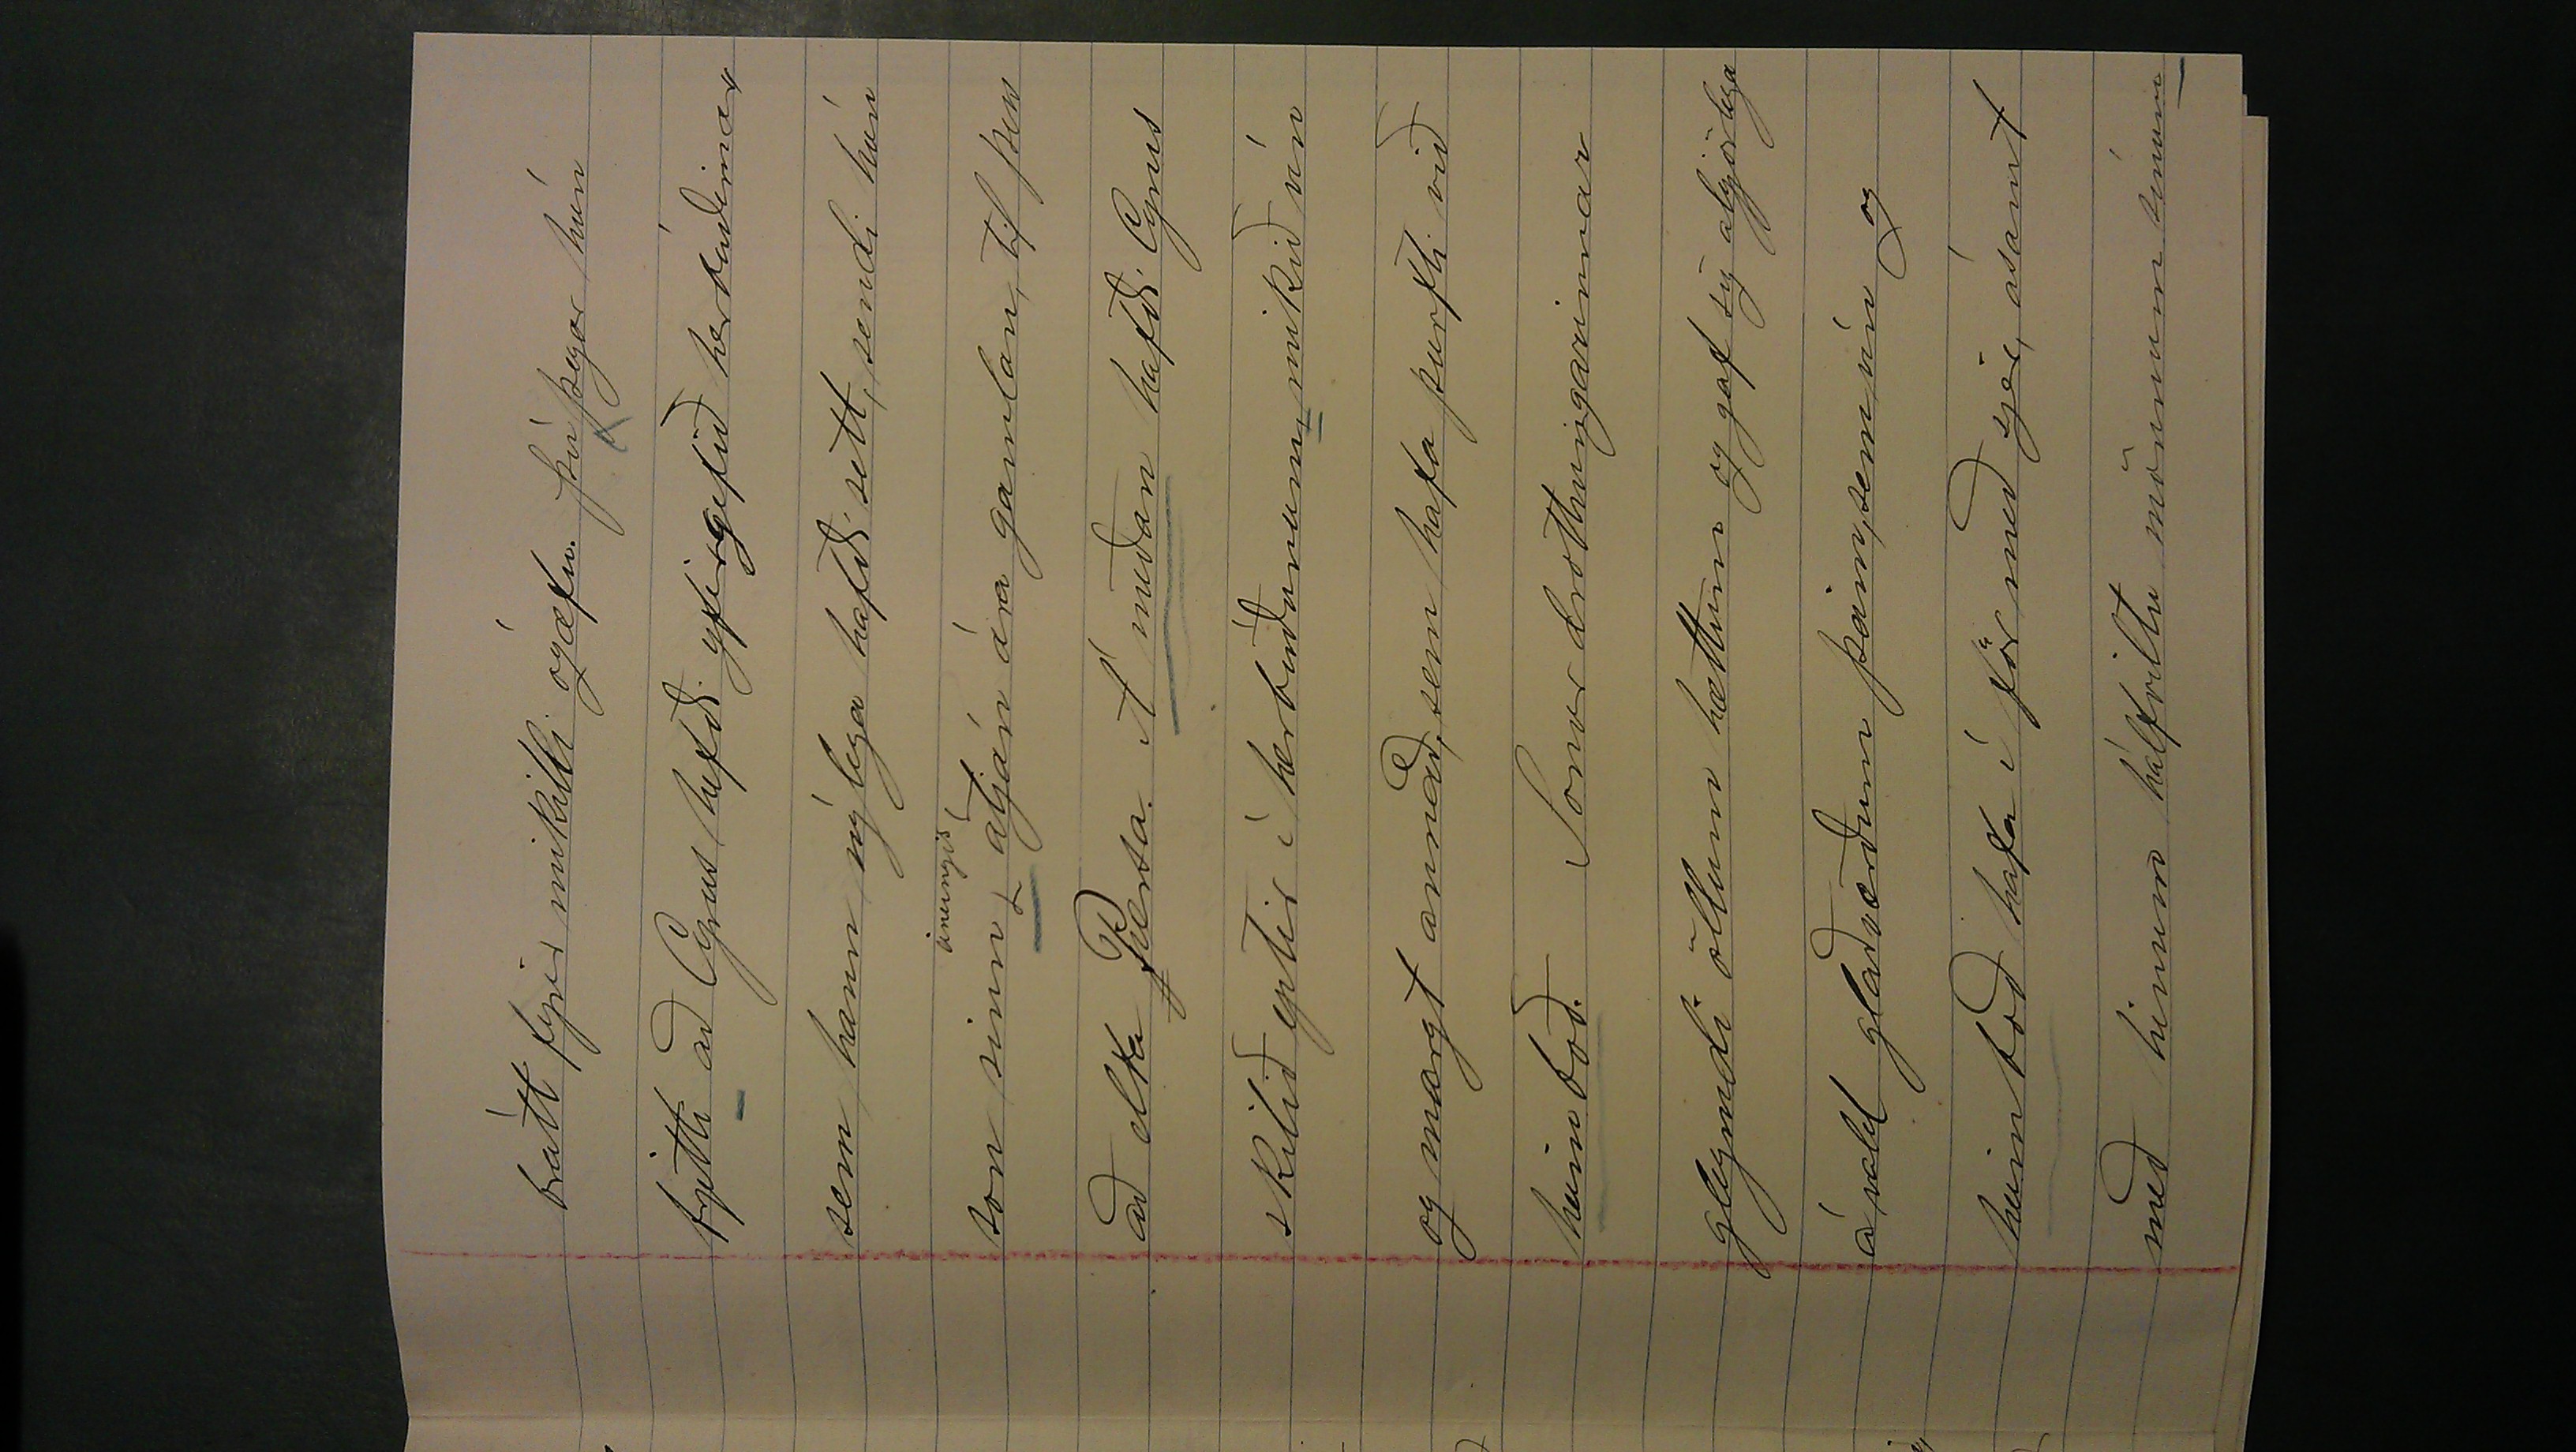 brátt fyrir mikilli ógæfu. Því þegar hún
frjetti að Cyrus hafði yfirgefið herbúðirnar
sem hann nýlega hafði sett, sendi hún
son sinn, einungis átján ára gamlan, til þess
að elta Persa. Á meðan hafði Cyrus
skilið eptir í herbúðunum mikið vín
og margt annað, sem hafa þurfti við
heimboð. Sonur drottningarinnar
gleymdi öllum hættum og gaf sig algjörlega
á vald glaðværðum þeim, sem vín og
heimboð hafa í för með sjer, ásamt
með hinum hálfviltu mönnum sínum